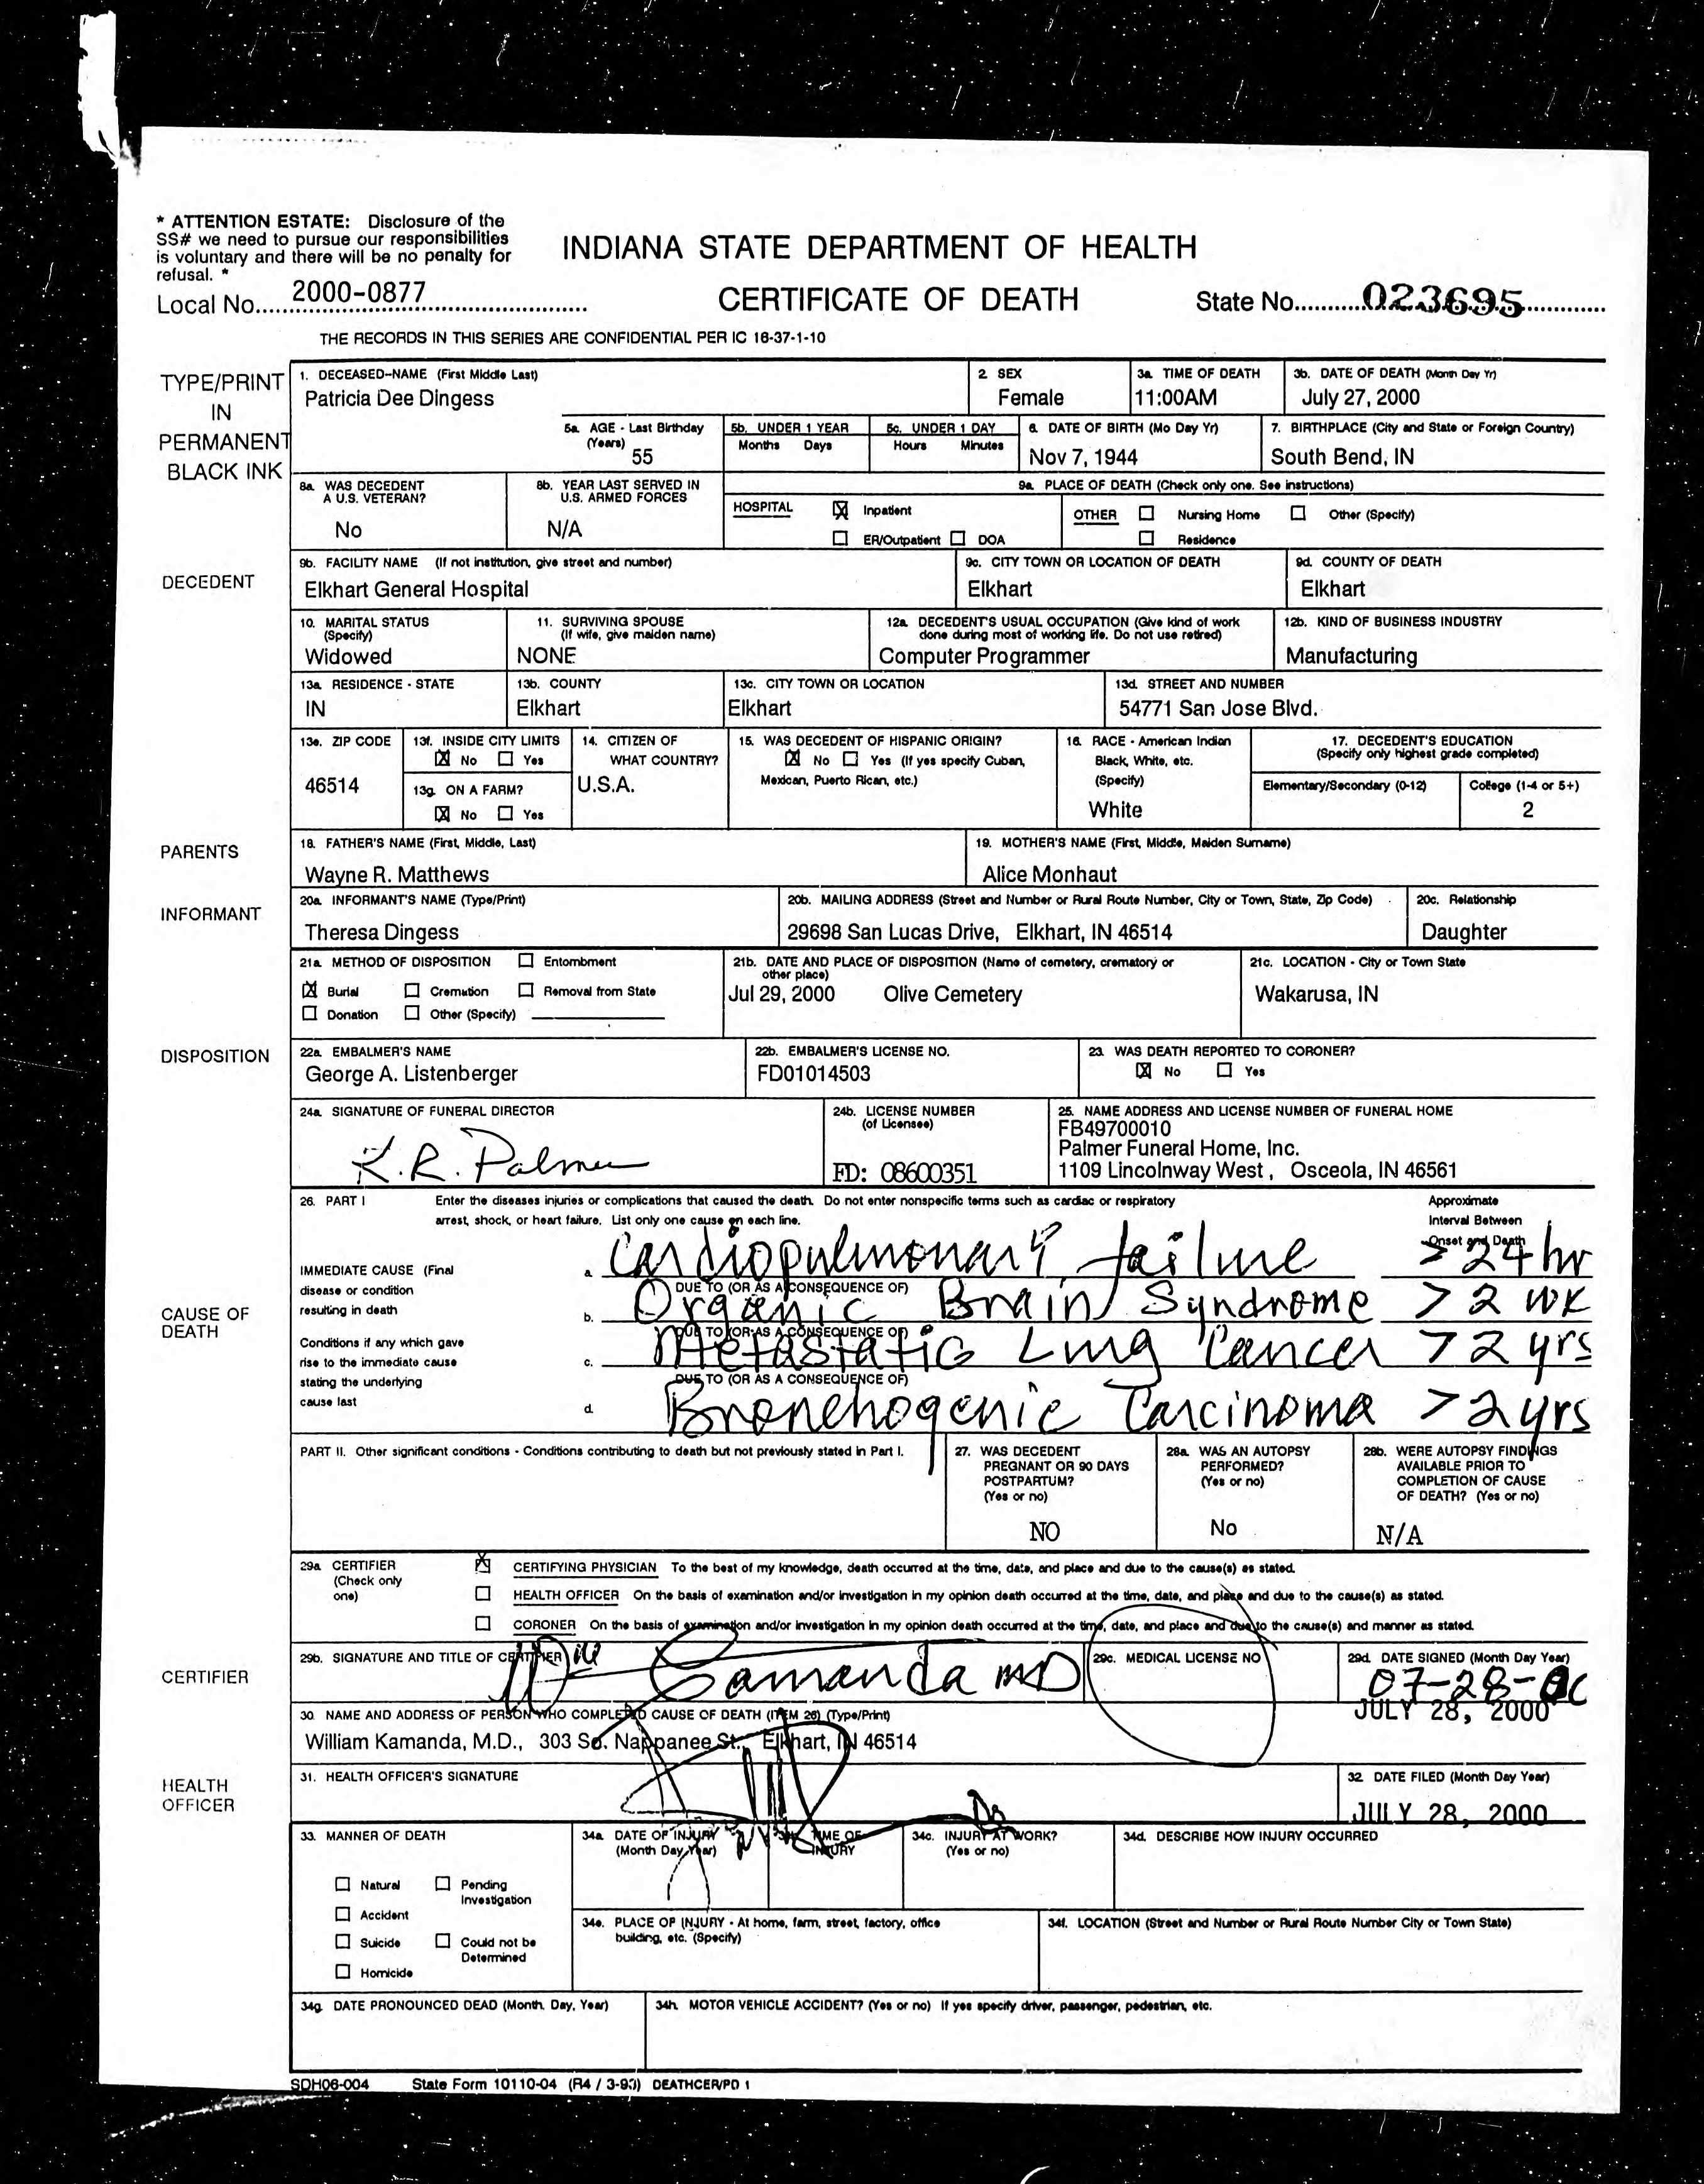 * ATTENTION ESTATE: Disclosure of the
SS# we need to pursue our responsibilities
is voluntary and there will be no penalty for
refusal. *
INDIANA STATE DEPARTMENT OF HEALTH
Local No. 2000-0877
CERTIFICATE OF DEATH
State No. 023695
THE RECORDS IN THIS SERIES ARE CONFIDENTIAL PER IC 16-37-1-10
TYPE/PRINT
IN
PERMANENT
BLACK INK
1. DECEASED-NAME (First Middle Last)
Patricia Dee Dingess
2. SEX
Female
3a. TIME OF DEATH
11:00AM
3b. DATE OF DEATH (Month Day Yr)
July 27, 2000
5a. AGE - Last Birthday
(Years)
55
5b. UNDER 1 YEAR
Months Days
5c. UNDER 1 DAY
Hours Minutes
6. DATE OF BIRTH (Mo Day Yr)
Nov 7, 1944
7. BIRTHPLACE (City and State or Foreign Country)
South Bend, IN
8a. WAS DECEDENT
A U.S. VETERAN?
No
8b. YEAR LAST SERVED IN
U.S. ARMED FORCES
N/A
9a. PLACE OF DEATH (Check only one. See instructions)
HOSPITAL Inpatient
ER/Outpatient DOA
OTHER Nursing Home Other (Specify)
Residence
DECEDENT
9b. FACILITY NAME (If not institution, give street and number)
Elkhart General Hospital
9c. CITY TOWN OR LOCATION OF DEATH
Elkhart
9d. COUNTY OF DEATH
Elkhart
10. MARITAL STATUS
(Specify)
Widowed
11. SURVIVING SPOUSE
(If wife, give maiden name)
NONE
12a. DECEDENT'S USUAL OCCUPATION (Give kind of work
done during most of working life. Do not use retired)
Computer Programmer
12b. KIND OF BUSINESS INDUSTRY
Manufacturing
13a. RESIDENCE - STATE
IN
13b. COUNTY
Elkhart
13c. CITY TOWN OR LOCATION
Elkhart
13d. STREET AND NUMBER
54771 San Jose Blvd.
13e. ZIP CODE
46514
13f. INSIDE CITY LIMITS
No Yes
13g. ON A FARM?
No Yes
14. CITIZEN OF
WHAT COUNTRY?
U.S.A.
15. WAS DECEDENT OF HISPANIC ORIGIN?
No Yes (If yes specify Cuban,
Mexican, Puerto Rican, etc.)
16. RACE - American Indian
Black, White, etc.
(Specify)
White
17. DECEDENT'S EDUCATION
(Specify only highest grade completed)
Elementary/Secondary (0-12)
College (1-4 or 5+)
2
PARENTS
18. FATHER'S NAME (First, Middle, Last)
Wayne R. Matthews
19. MOTHER'S NAME (First, Middle, Maiden Surname)
Alice Monhaut
INFORMANT
20a. INFORMANT'S NAME (Type/Print)
Theresa Dingess
20b. MAILING ADDRESS (Street and Number or Rural Route Number, City or Town, State, Zip Code)
29698 San Lucas Drive, Elkhart, IN 46514
20c. Relationship
Daughter
21a. METHOD OF DISPOSITION Entombment
Burial Cremation Removal from State
Donation Other (Specify)
21b. DATE AND PLACE OF DISPOSITION (Name of cemetery, crematory or
other place)
Jul 29, 2000 Olive Cemetery
21c. LOCATION - City or Town State
Wakarusa, IN
DISPOSITION
22a. EMBALMER'S NAME
George A. Listenberger
22b. EMBALMER'S LICENSE NO.
FD01014503
23. WAS DEATH REPORTED TO CORONER?
No Yes
24a. SIGNATURE OF FUNERAL DIRECTOR
K.R. Palmer
24b. LICENSE NUMBER
(of Licensee)
FD: 08600351
25. NAME ADDRESS AND LICENSE NUMBER OF FUNERAL HOME
FB49700010
Palmer Funeral Home, Inc.
1109 Lincolnway West, Osceola, IN 46561
26. PART I Enter the diseases injuries or complications that caused the death. Do not enter nonspecific terms such as cardiac or respiratory
arrest, shock, or heart failure. List only one cause on each line.
Approximate
Interval Between
Onset and Death
CAUSE OF
DEATH
IMMEDIATE CAUSE (Final
disease or condition
resulting in death
Conditions if any which gave
rise to the immediate cause
stating the underlying
cause last
a. Cardiopulmonary failure >24 hr
DUE TO (OR AS A CONSEQUENCE OF)
b. Organic Brain Syndrome >2 wk
DUE TO (OR AS A CONSEQUENCE OF)
c. Metastatic Lung Cancer >2 yrs
DUE TO (OR AS A CONSEQUENCE OF)
d. Bronchogenic Carcinoma >2 yrs
PART II. Other significant conditions - Conditions contributing to death but not previously stated in Part I.
27. WAS DECEDENT
PREGNANT OR 90 DAYS
POSTPARTUM?
(Yes or no)
NO
28a. WAS AN AUTOPSY
PERFORMED?
(Yes or no)
No
28b. WERE AUTOPSY FINDINGS
AVAILABLE PRIOR TO
COMPLETION OF CAUSE
OF DEATH? (Yes or no)
N/A
29a. CERTIFIER
(Check only
one)
CERTIFYING PHYSICIAN To the best of my knowledge, death occurred at the time, date, and place and due to the cause(s) as stated.
HEALTH OFFICER On the basis of examination and/or investigation in my opinion death occurred at the time, date, and place and due to the cause(s) as stated.
CORONER On the basis of examination and/or investigation in my opinion death occurred at the time, date, and place and due to the cause(s) and manner as stated.
CERTIFIER
29b. SIGNATURE AND TITLE OF CERTIFIER
Kamanda MD
29c. MEDICAL LICENSE NO
29d. DATE SIGNED (Month Day Year)
07-28-00
JULY 28, 2000
30. NAME AND ADDRESS OF PERSON WHO COMPLETED CAUSE OF DEATH (ITEM 26) (Type/Print)
William Kamanda, M.D., 303 So. Nappanee St., Elkhart, IN 46514
HEALTH
OFFICER
31. HEALTH OFFICER'S SIGNATURE
32. DATE FILED (Month Day Year)
JULY 28, 2000
33. MANNER OF DEATH
Natural Pending
Investigation
Accident
Suicide Could not be
Determined
Homicide
34a. DATE OF INJURY
(Month Day Year)
34b. TIME OF
INJURY
34c. INJURY AT WORK?
(Yes or no)
34d. DESCRIBE HOW INJURY OCCURRED
34e. PLACE OF INJURY - At home, farm, street, factory, office
building, etc. (Specify)
34f. LOCATION (Street and Number or Rural Route Number City or Town State)
34g. DATE PRONOUNCED DEAD (Month, Day, Year)
34h. MOTOR VEHICLE ACCIDENT? (Yes or no) If yes specify driver, passenger, pedestrian, etc.
SDH06-004 State Form 10110-04 (R4 / 3-93) DEATHCER/PD 1